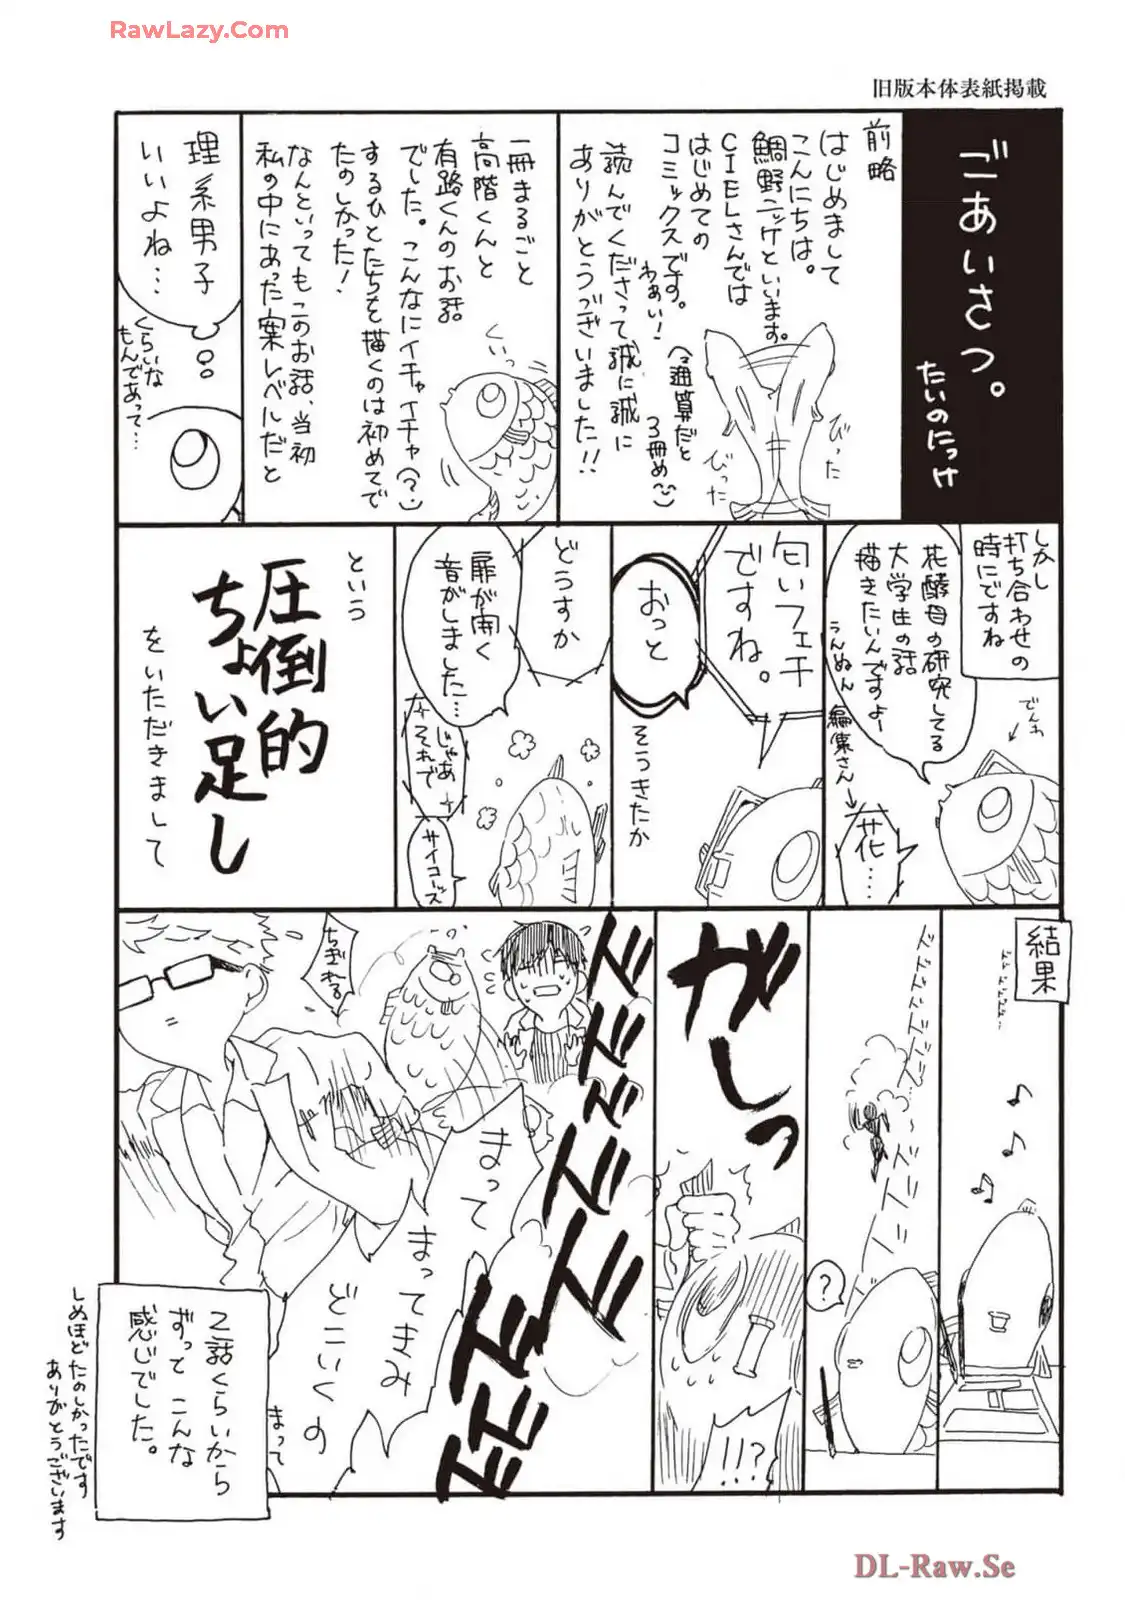 RawLazy.Com
旧版本体表紙掲載
ごあいさつ。
たいのにっけ
前略
はじめまして
こんにちは。
鯛野ニッケといいます。
CIELさんでは
はじめての
コミックスです。
わぁい!
(通算だと
3冊め)
読んでくださって誠に誠に
ありがとうございました!!
びった
びった
一冊まるごと
高階くんと
有路くんのお話
でした。こんなにイチャイチャ(?)
するひとたちを描くのは初めてで
たのしかった!
なんといってもこのお話、当初
私の中にあった案レベルだと
くいっ
理系男子
いいよね…
くらいな
もんであって…
しかし
打ち合わせの
時にですね
花酵母の研究してる
大学生の話
描きたいんですよー
うんぬん
でんわ
編集さん
花……
匂いフェチ
ですね。
おっと
そうきたか
どうすか
扉が開く
音がしました…
じゃあ
それで
サイコーズ
という
圧倒的
ちょい足し
をいただきまして
結果
ドドドドド…
ドドドドドドドド
?
がしっ
!!?
ドドドドドドドドドド
ちぎれる
まって
まってきみ
どこいくの
まって
2話くらいから
ずっとこんな
感じでした。
しぬほどたのしかったです
ありがとうございます
DL-Raw.Se